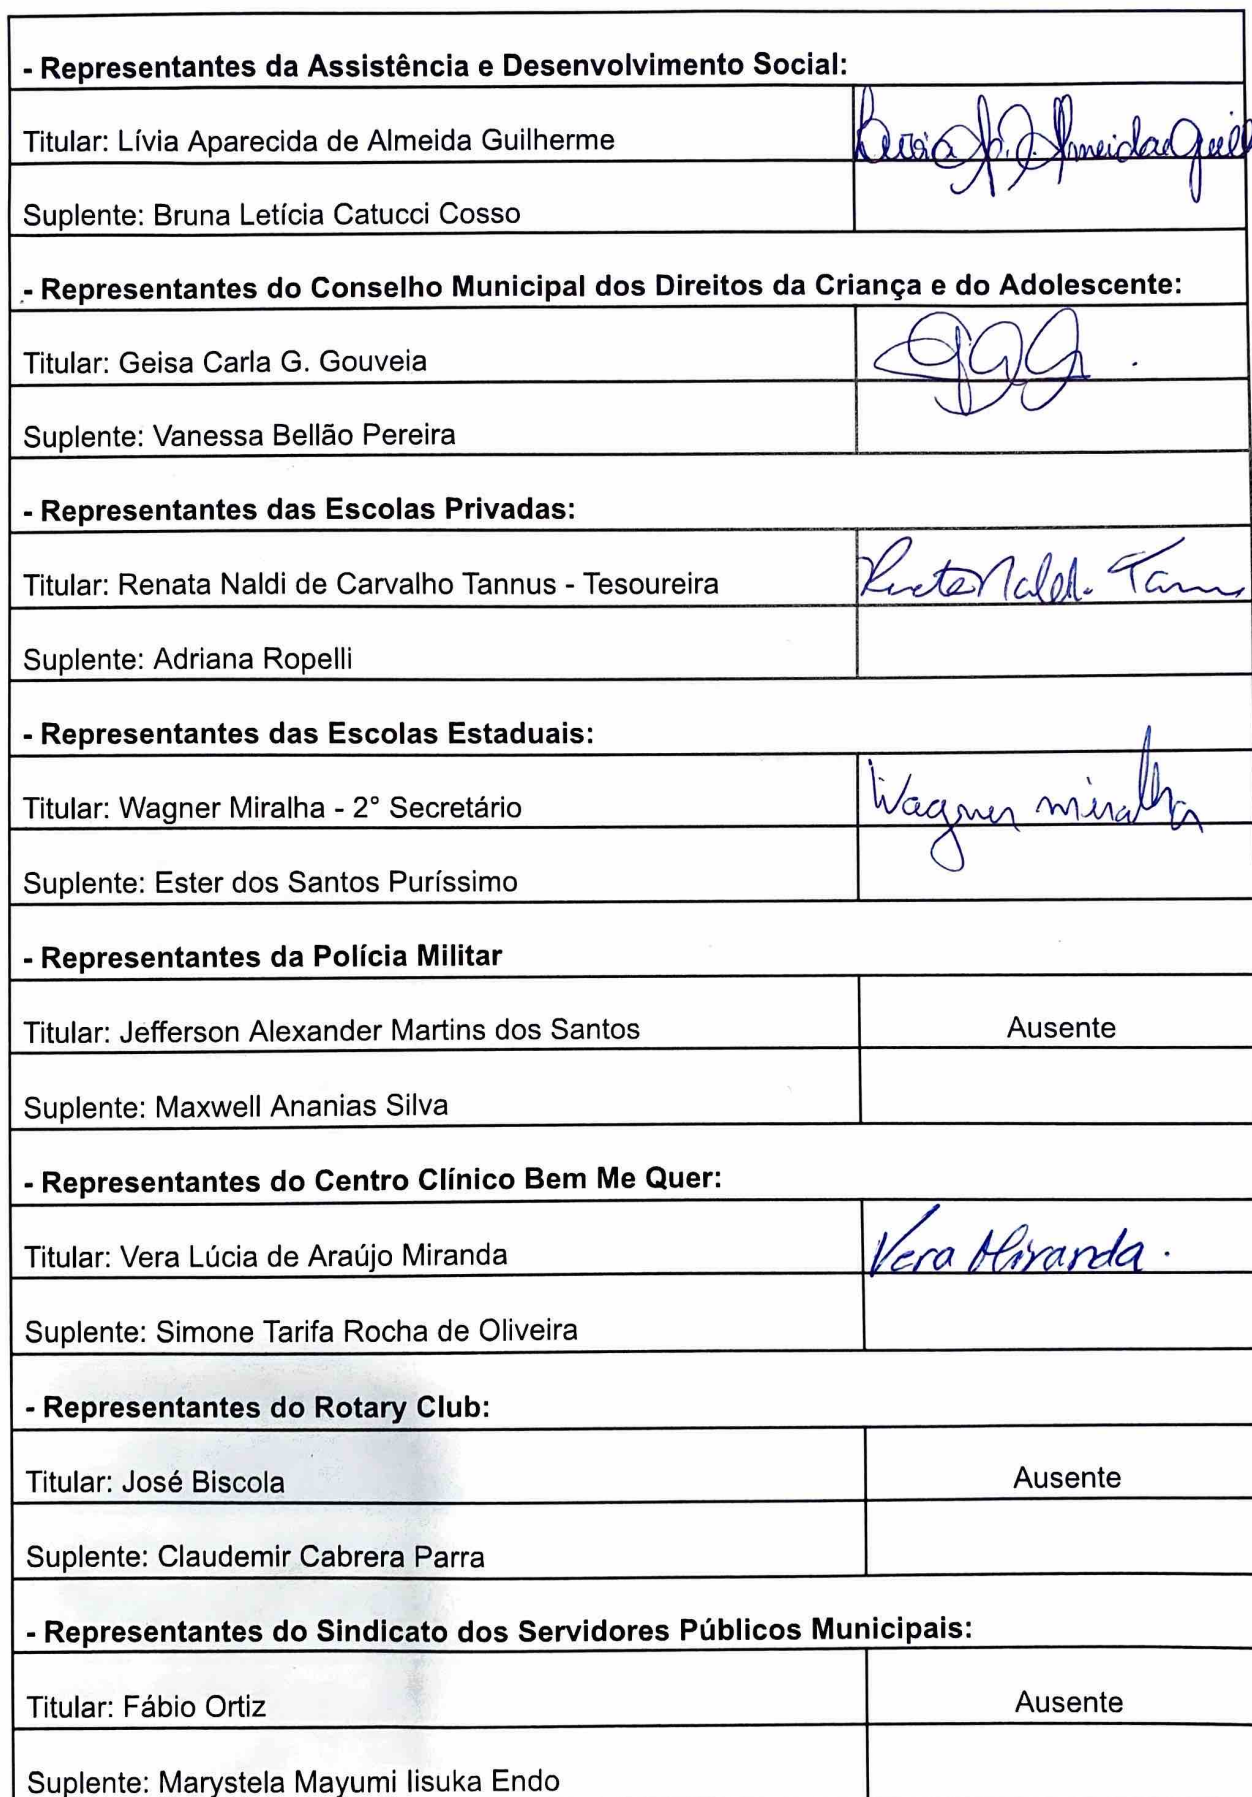 - Representantes da Assistência e Desenvolvimento Social:
Titular: Lívia Aparecida de Almeida Guilherme
Suplente: Bruna Letícia Catucci Cosso
- Representantes do Conselho Municipal dos Direitos da Criança e do Adolescente:
Titular: Geisa Carla G. Gouveia
Suplente: Vanessa Bellão Pereira
- Representantes das Escolas Privadas:
Titular: Renata Naldi de Carvalho Tannus - Tesoureira
Suplente: Adriana Ropelli
- Representantes das Escolas Estaduais:
Titular: Wagner Miralha - 2° Secretário Wagner miralha
Suplente: Ester dos Santos Puríssimo
- Representantes da Polícia Militar
Titular: Jefferson Alexander Martins dos Santos Ausente
Suplente: Maxwell Ananias Silva
- Representantes do Centro Clínico Bem Me Quer:
Titular: Vera Lúcia de Araújo Miranda Vera Miranda.
Suplente: Simone Tarifa Rocha de Oliveira
- Representantes do Rotary Club:
Titular: José Biscola Ausente
Suplente: Claudemir Cabrera Parra
- Representantes do Sindicato dos Servidores Públicos Municipais:
Titular: Fábio Ortiz Ausente
Suplente: Marystela Mayumi Iisuka Endo